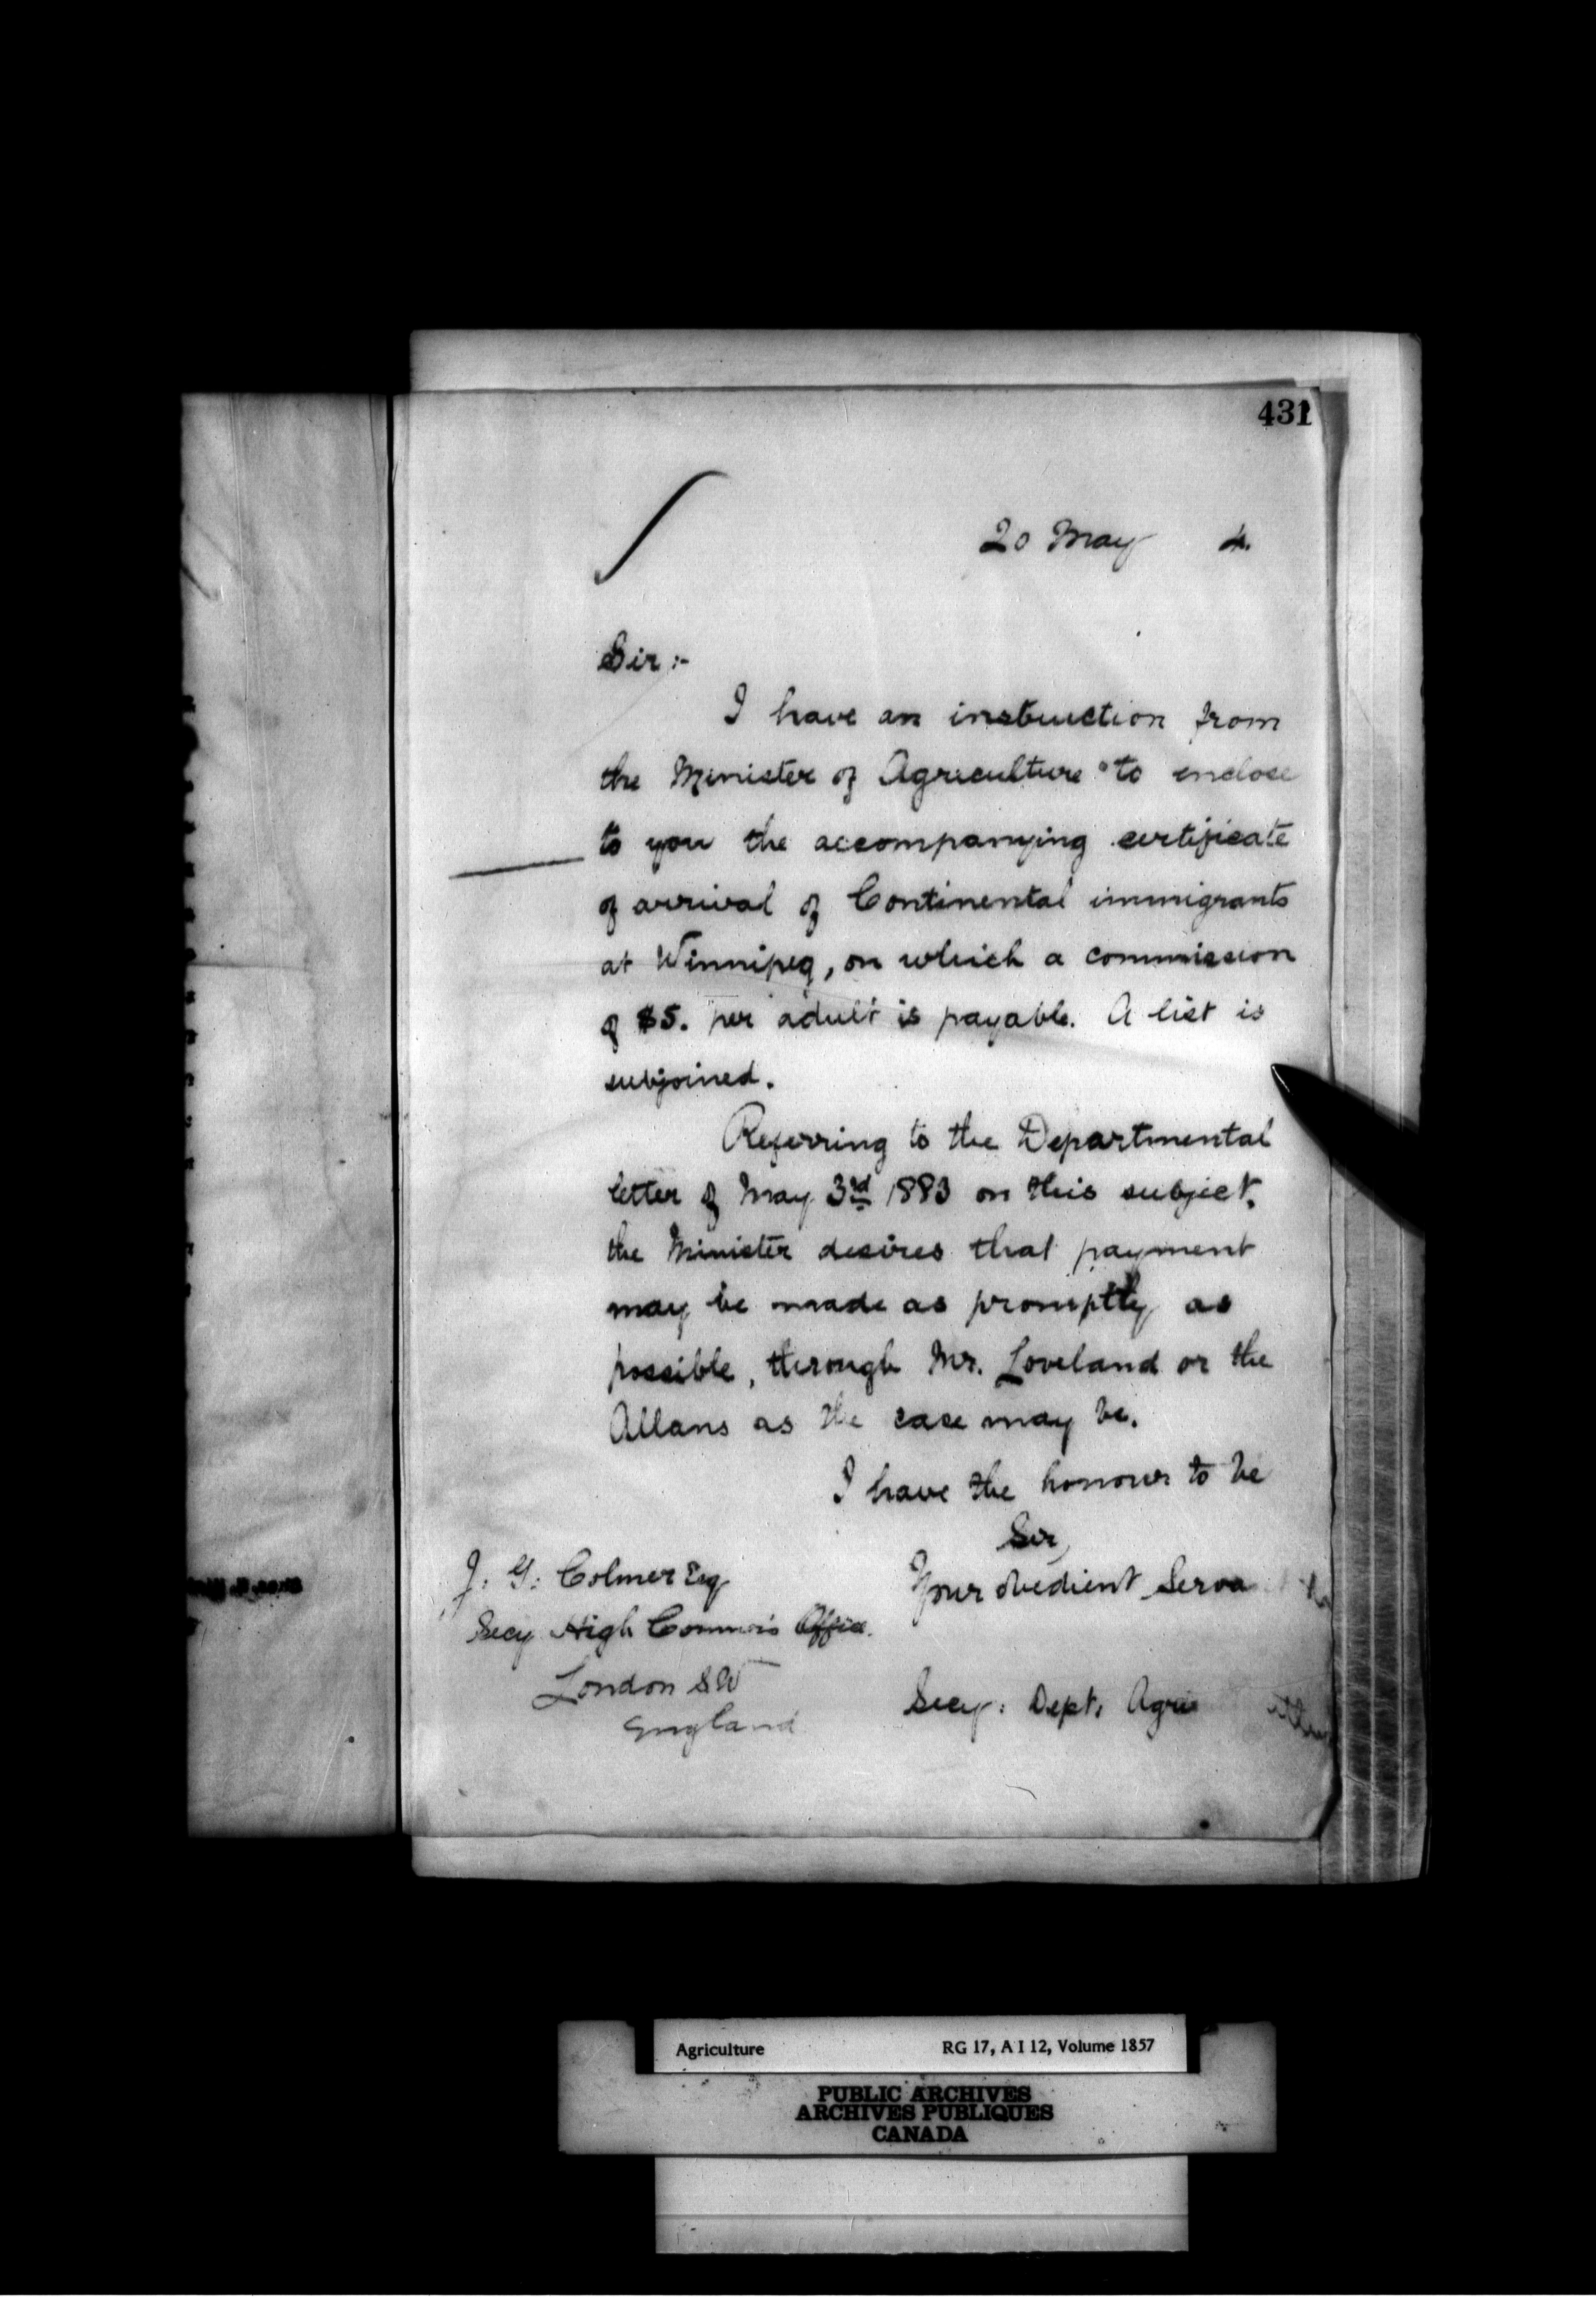 431
20 May 4.
Sir:-
I have an instruction from
the Minister of Agriculture to enclose
to you the accompanying certificate
of arrival of Continental immigrants
at Winnipeg, on which a commission
of $5. per adult is payable. A list is
subjoined.
Referring to the Departmental
letter of May 3rd 1883 on this subject,
the Minister desires that payment
may be made as promptly as
possible, through Mr. Loveland or the
Allans as the case may be.
I have the honour to be
Sir,
Your obedient Serva
J. G. Colmer Esq
Secy High Commr's Office.
London SW
England
Secy: Dept. Agri
Agriculture RG 17, A I 12, Volume 1857
PUBLIC ARCHIVES
ARCHIVES PUBLIQUES
CANADA